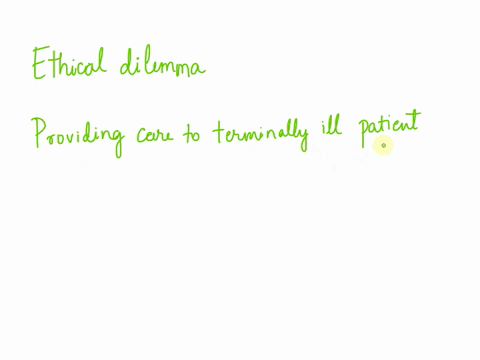 Ethical dilemma
Providing care to terminally ill patient